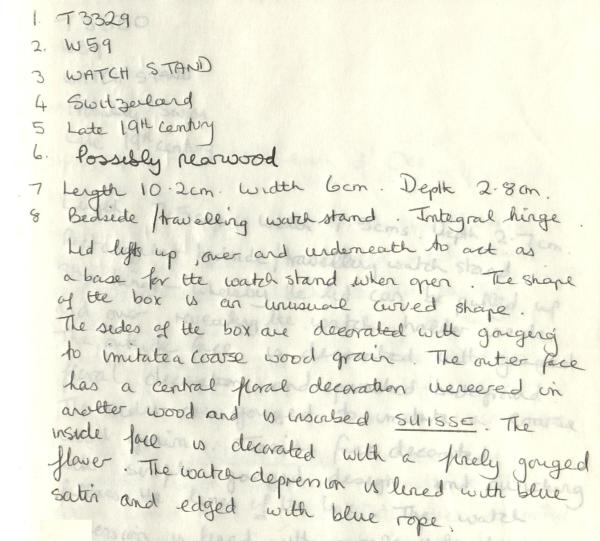 1. T3329
2. W59
3 WATCH STAND
4 Switzerland
5 Late 19th Century
6. Possibly pearwood
7 Length 10.2cm. Width 6cm. Depth 2.8cm.
8 Bedside/travelling watch stand. Integral hinge.
Lid lifts up, over and underneath to act as
a base for the watch stand when open. The shape
of the box is an unusual curved shape.
The sides of the box are decorated with gouging
to imitate a coarse wood grain. The outer face
has a central floral decoration veneered in
another wood and is inscribed SUISSE. The
inside face is decorated with a finely gouged
flower. The watch depression is lined with blue
satin and edged with blue rope.